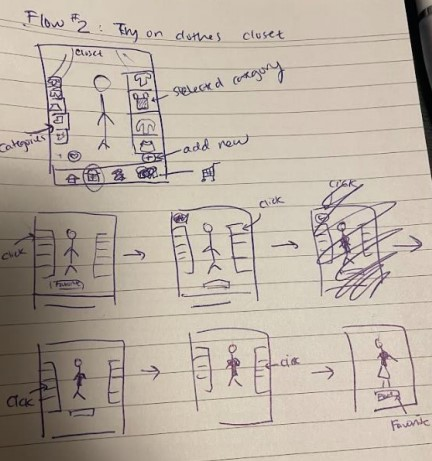 Flow #2: Try on clothes closet
closet
selected category
categories
add new
click
click
click
(Favorite)
click
click
Favorite